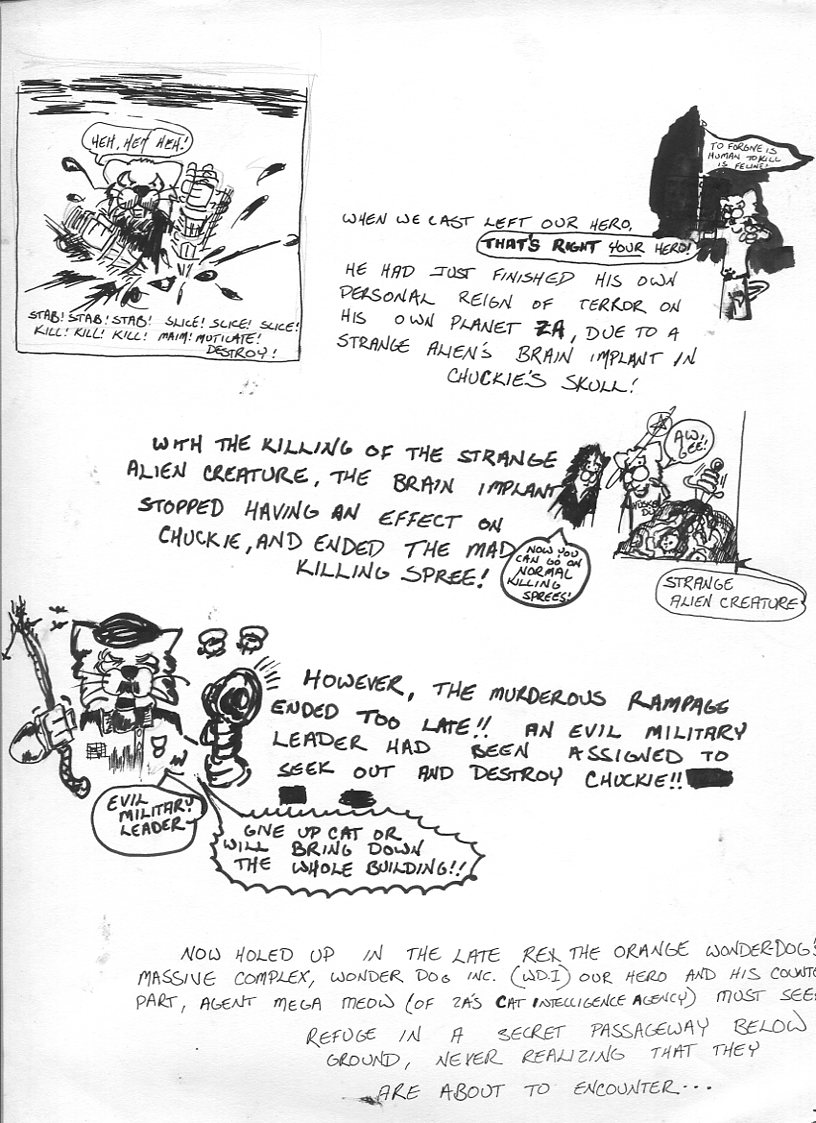 HEH, HEH HEH!
STAB! STAB! STAB! SLICE! SLICE! SLICE!
KILL! KILL! KILL! MAIM! MUTILATE!
DESTROY!
TO FORGIVE IS
HUMAN TO KILL
IS FELINE!
WHEN WE LAST LEFT OUR HERO,
THAT'S RIGHT YOUR HERO!
HE HAD JUST FINISHED HIS OWN
PERSONAL REIGN OF TERROR ON
HIS OWN PLANET ZA, DUE TO A
STRANGE ALIEN'S BRAIN IMPLANT IN
CHUCKIE'S SKULL!
WITH THE KILLING OF THE STRANGE
ALIEN CREATURE, THE BRAIN IMPLANT
STOPPED HAVING AN EFFECT ON
CHUCKIE, AND ENDED THE MAD
KILLING SPREE!
AW,
GEE!
NOW YOU
CAN GO ON
NORMAL
KILLING
SPREES!
STRANGE
ALIEN CREATURE
HOWEVER, THE MURDEROUS RAMPAGE
ENDED TOO LATE!! AN EVIL MILITARY
LEADER HAD BEEN ASSIGNED TO
SEEK OUT AND DESTROY CHUCKIE!!
EVIL
MILITARY
LEADER
GIVE UP CAT OR
WILL BRING DOWN
THE WHOLE BUILDING!!
NOW HOLED UP IN THE LATE REX THE ORANGE WONDER-DOG'S
MASSIVE COMPLEX, WONDER DOG INC. (W.D.I) OUR HERO AND HIS COUNTE
PART, AGENT MEGA MEOW (OF ZA'S CAT INTELLIGENCE AGENCY) MUST SEE
REFUGE IN A SECRET PASSAGEWAY BELOW
GROUND, NEVER REALIZING THAT THEY
ARE ABOUT TO ENCOUNTER...